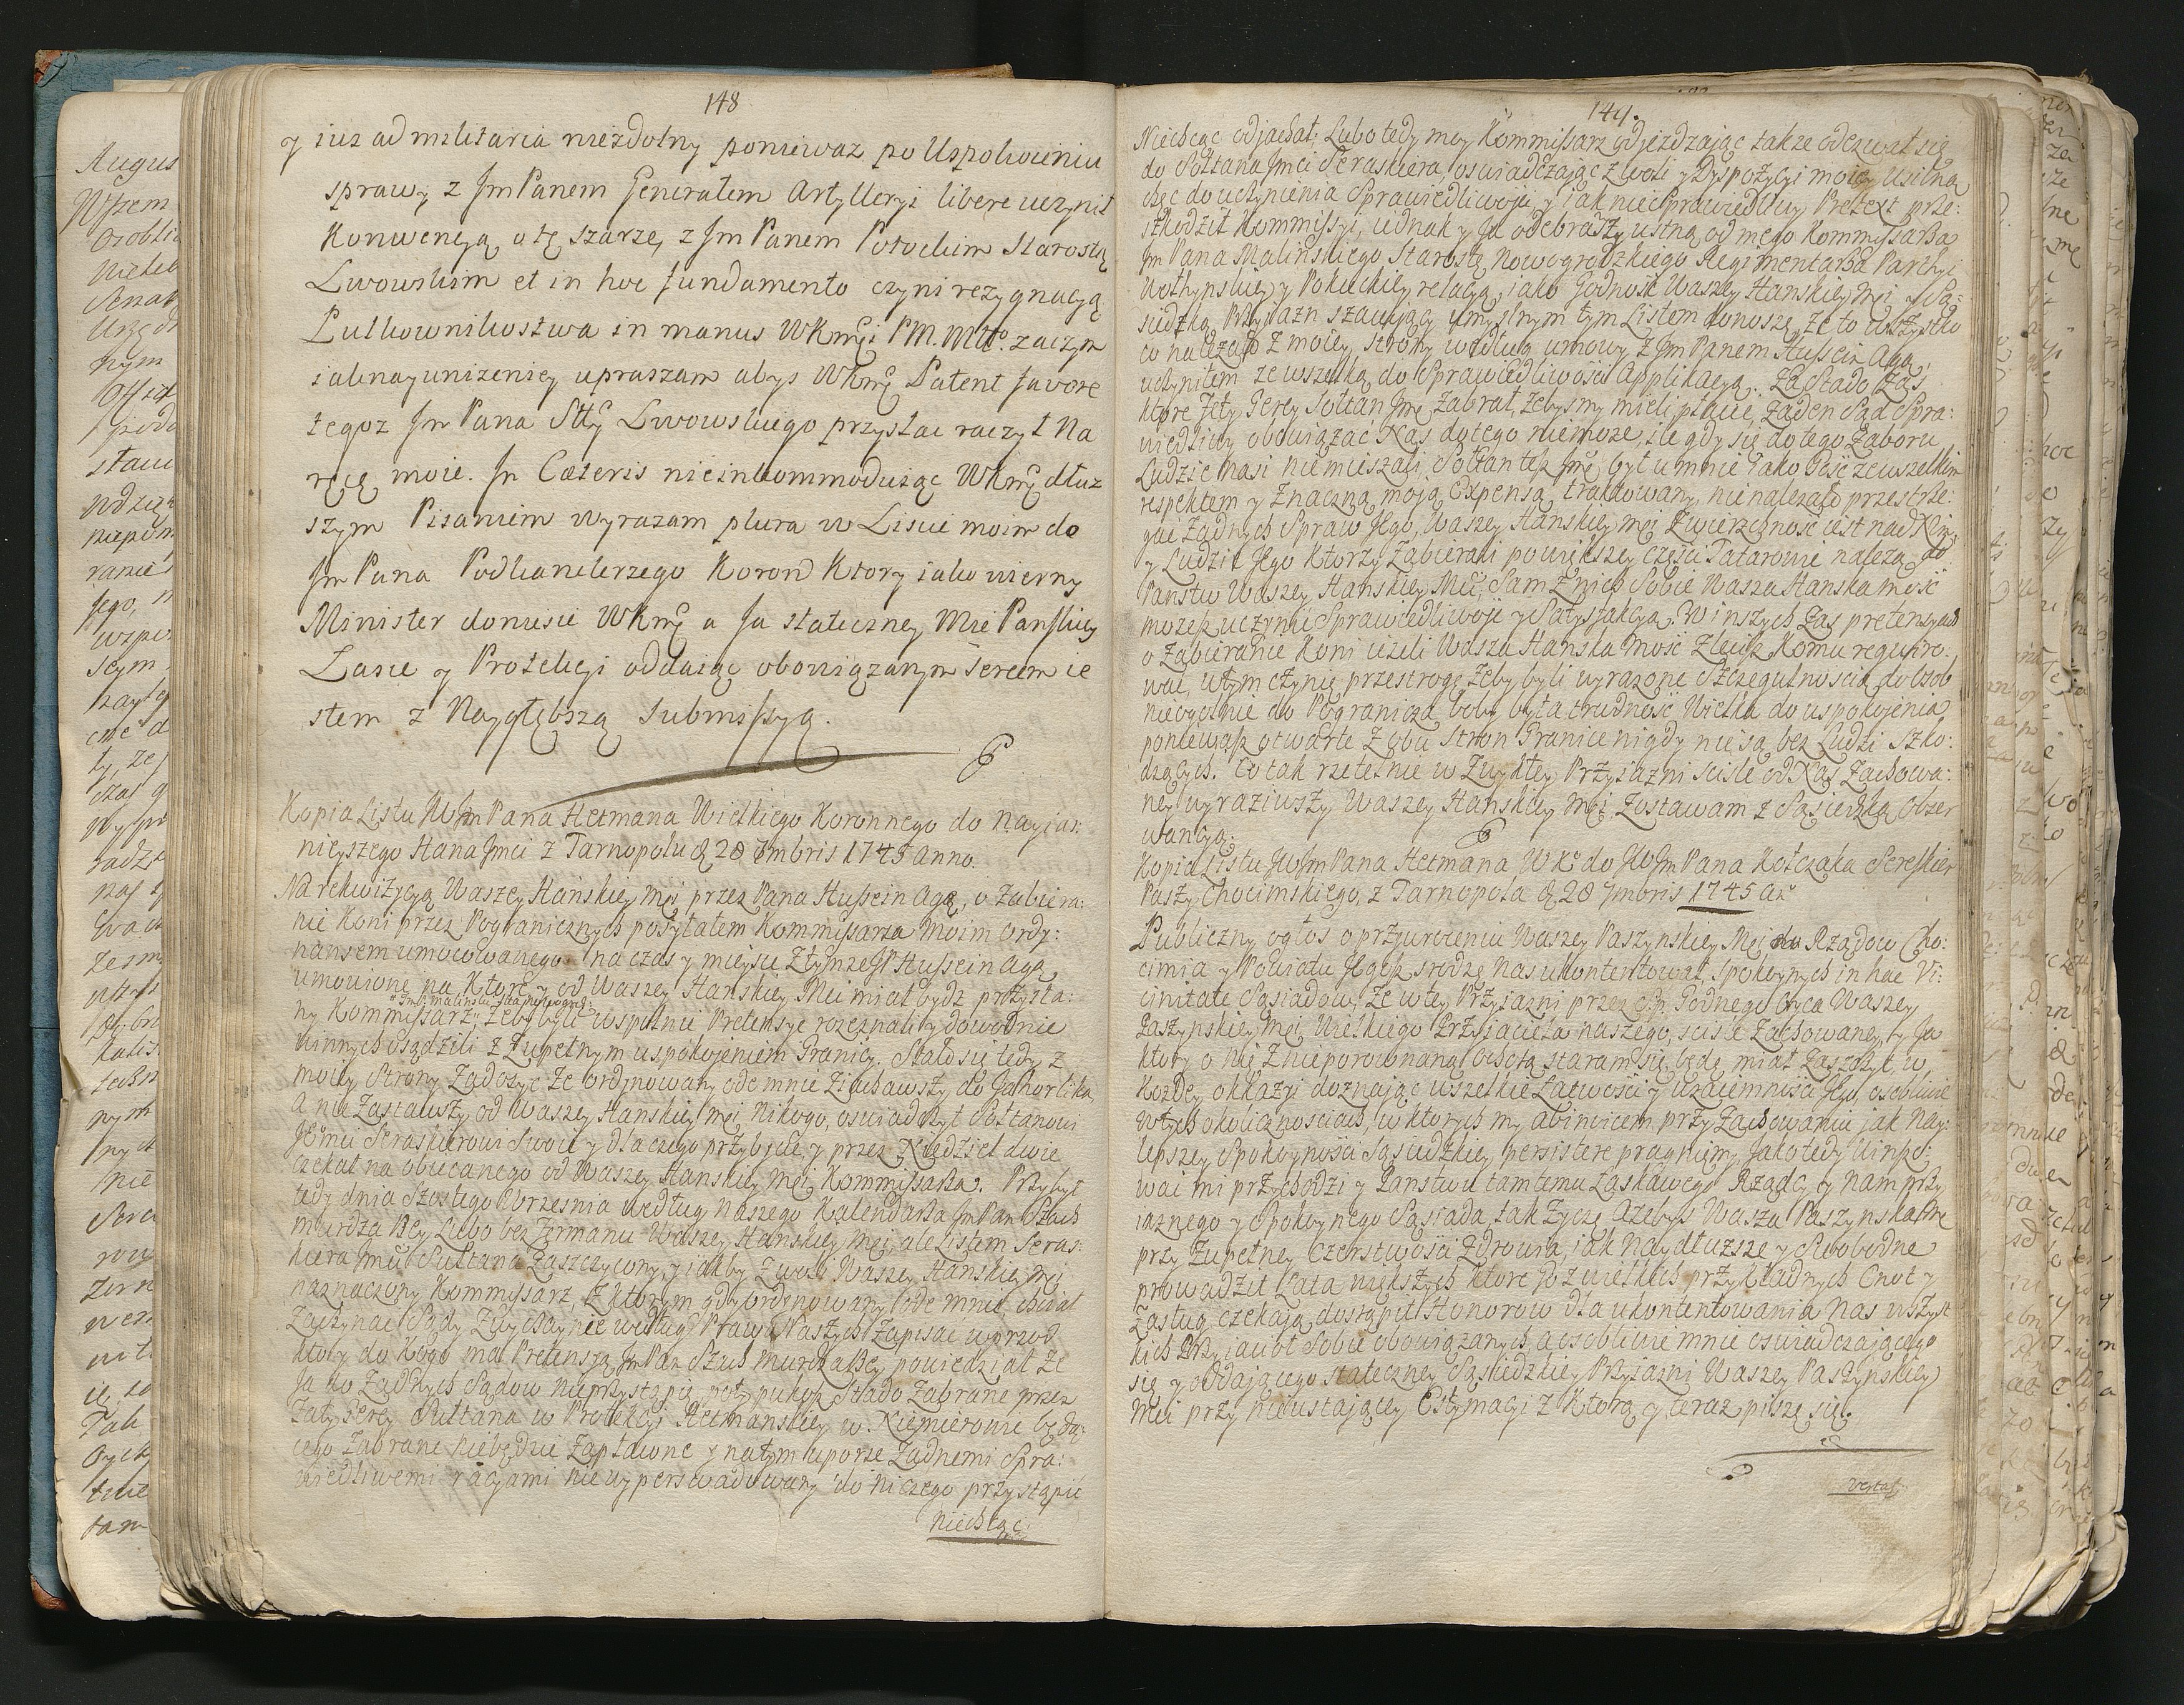 148
y iuz ad militaria niezdolny poniewaz po Uspokoieniu
sprawy z Jm Panem Generałem Artylleryi libere uczynił
Konwencyą o tę szarze, z Jm Panem Potockim Starostą
Lwowskim et in hoc fundamento czyni rezygnacyą
Pułkownikostwa in manus WKMci PM. Młł. zaczym
iaknayunizeniey upraszam abys WKMć Patent favore
tegoz Jm Pana Sttty Lwowskiego przysłac raczył Na
ręcę moie. In Cæteris nieinkommoduiąc WKMć dłuz
szym Pisaniem wyrazam plura w Liscie moim do
Jm Pana Podkanclerzego Koron Ktory iako wierny
Minister doniesie WKMć a Ja stateczney Mće Panskiey
Łasce y Protekcyi oddaiąc obowiązanym sercem ie
stem z Naygłębszą Submissyą.
Kopia Listu JWJm Pana Hetmana Wielkiego Koronnego do Nayjas:
nieyszego Hana Jmci z Tarnopolu d 20 7mbris 1745 Anno.
Na rekwizycyą Waszey Hanskiey Mci przez Pana Hussein Agę, o Zabiera:
nie Koni przez Pogranicznych posyłałem Kommissarza Moim Ordy:
nansem umocowanego na czas y mieysce z tymze JP Hussein Agą
umowione na Ktore y od Waszey Hanskiey Mci miał bydz przysła:
ny Kommissarz, Zeby byli wspolnie Pretensye rozeznali y dowodnie
winnych osądzili z Zupełnym uspokojeniem Granicy. Stało się tedy z
moiey Strony Zadosyc ze ordynowany odemnie Ziachawszy do Jahorlika,
a nie Zastawszy od Waszey Hanskiey Mci Nikogo, oswiadczył Sołtanowi
Jegomci Seraskierowi swoie y dla czego przybycie, y przez Niedziel dwie
czekał na obiecanego od Waszey Hanskiey Mci Kommissarza. Przybył
tedy dnia Szostego Wrzesnia według Naszego Kalendarza Jm Pan Szach
Murdza Bey Lubo bez Firmanu Waszey Hanskiey Mci, ale Listem Seras:
kiera Jmci Sułtana Zaszczycony, y iakby z woli Waszey Hanskiey Mci
naznaczony Kommissarz, Z ktorym gdy ordynowany ode mnie chciał
Zaczynac Sądy Zwyczaynie według Prawa Naszych Zapisac wprzod
ktory do Kogo ma Pretensyą, Jm Pan Szach Murdza Bey powiedział ze
Ja do Zadnych Sądow nieprzystąpię, poty pokisz Stado Zabrane przez
Zaty Gerey Sułtana w Protekcyi Hetmanskiey w Niemierowie będą:
cego Zabrane niebędzie Zapłacone y na tym uporze Zadnemi Spra:
wiedliwemi racyami niewyperswadowany do niczego przystąpic
Niechcąc.
149.
Niechcąc odjachał. Lubo tedy moy Kommissarz odjezdzając takze odezwał się
do Sołtana Jmci Seraskiera, oswiadczając z woli y Dyspozycyi moiey usilną
chęc do uczynienia Sprawiedliwosci, y iak niesprawiedliwy Pretext prze:
szkodził Kommissyi, iednak y Ja odebrawszy ustną od mego Kommissarza
Jm Pana Malinskiego Starostę Nowogrodzkiego Regimentarza Partyi
Wołhynskiey y Pokuckiey relacyą, iako Godnosc Waszey Hanskiey Mci y Są:
siedzką Przyiazn szacujący umyslnym tym Listem donoszę, ze to wszystko
co nalezało z moiey strony według umowy z Jm Panem Hussein Agą,
uczyniłem ze wszelką do Sprawiedliwosci Applikacyą. Za Stado Zas
ktore Zety Gerey Sołtan Jmć Zabrał, Zebysmy mieli płacic, Zaden Sąd Spra:
wiedliwy obowiązac Nas do tego niemoze, ile gdy się do tego Zaboru
Ludzie Nasi niemieszali, Sołtan tesz Jmć był u mnie iako Gosc ze wszelkim
respektem y Znaczną moją Expensą traktowany, nie nalezało przestrze:
gac Zadnych Spraw Jego, Waszey Hanskiey Mci Zwierzchnosc iest nad Nim,
y Ludzie Jego Ktorzy Zabierali powiększey części Tatarowie nalezą do
Panstw Waszey Hanskiey Mci, Sam z nich Sobie Wasza Hanska Mosc
mozesz uczynic Sprawiedliwosc y Satysfakcyą. W inszych Zas pretensyach
o Zabieranie Koni iezeli Wasza Hanska Mosc Zlecisz Komu requiro:
wac, w tym czynię przestrogę Zeby byli wyrazone Szczegulnoscią do Osob
nieogolnie do Pogranicza boby była trudnosc Wielka do uspokojenia
poniewasz otwarte z obu Stron Granice nigdy nie są bez Ludzi Szko:
dzących. Co tak rzetelnie w Zwykłey Przyjazni scisle od Nas Zachowa:
ney wyraziwszy Waszey Hanskiey Mci Zostawam z Sąsiedzką Obser
wancyą.
Kopia Listu JWJm Pana Hetmana W Kº do JWJm Pana Kołczaka Sereskier
Paszy Chocimskiego, z Tarnopola d. 20 7mbris 1745 Aº
Publiczny ogłos o przywroceniu Waszey Paszynskiey Mci do Rządow Cho:
cimia y Powiatu Jegosz srodze Nas ukontentował, Spokoynych in hac Vi:
cinitate Sąsiadow, Ze w tey Przyjazni, przez S.P. Godnego Oyca Waszey
Paszynskiey Mci, Wielkiego Przyjaciela naszego, scisle Zachowaney, y Ja
ktory o nię Z nieporownaną ochotą staram się, będę miał Zaszczyt, w
Kozdey okkazyi doznając wszelkie Łatwosci y wzaiemnosci Jego, osobliwie
w tych okolicznosciach, w ktorych my ab invicem przy Zachowaniu jak Nay:
lepszey Spokoynosci Sąsiedzkiey persistere pragniemy. Jako tedy Winszo:
wac mi przychodzi y Panstwu tamtemu Łaskawego Rządcy y Nam przy
iaznego y Spokoynego Sąsiada, tak Zyczę Azebys Wasza Paszynska Mć
przy Zupełney Czerstwosci Zdrowia, iak Naydłuzsze y Swobodne
prowadził Lata większych ktore Jo z wielkich przykładnych Cnot y
Zasług czekają dostąpił Honorow dla ukontentowania Nas wszyst
kich Przyiacioł Sobie obowiązanych, a osobliwie mnie oswiadczającego
się y oddającego stateczney Sąsiedzkiey Przyjazni Waszey Paszynskiey
Mci przy nieustającey Estymacyi z Ktorą y teraz piszę się.
Vertas